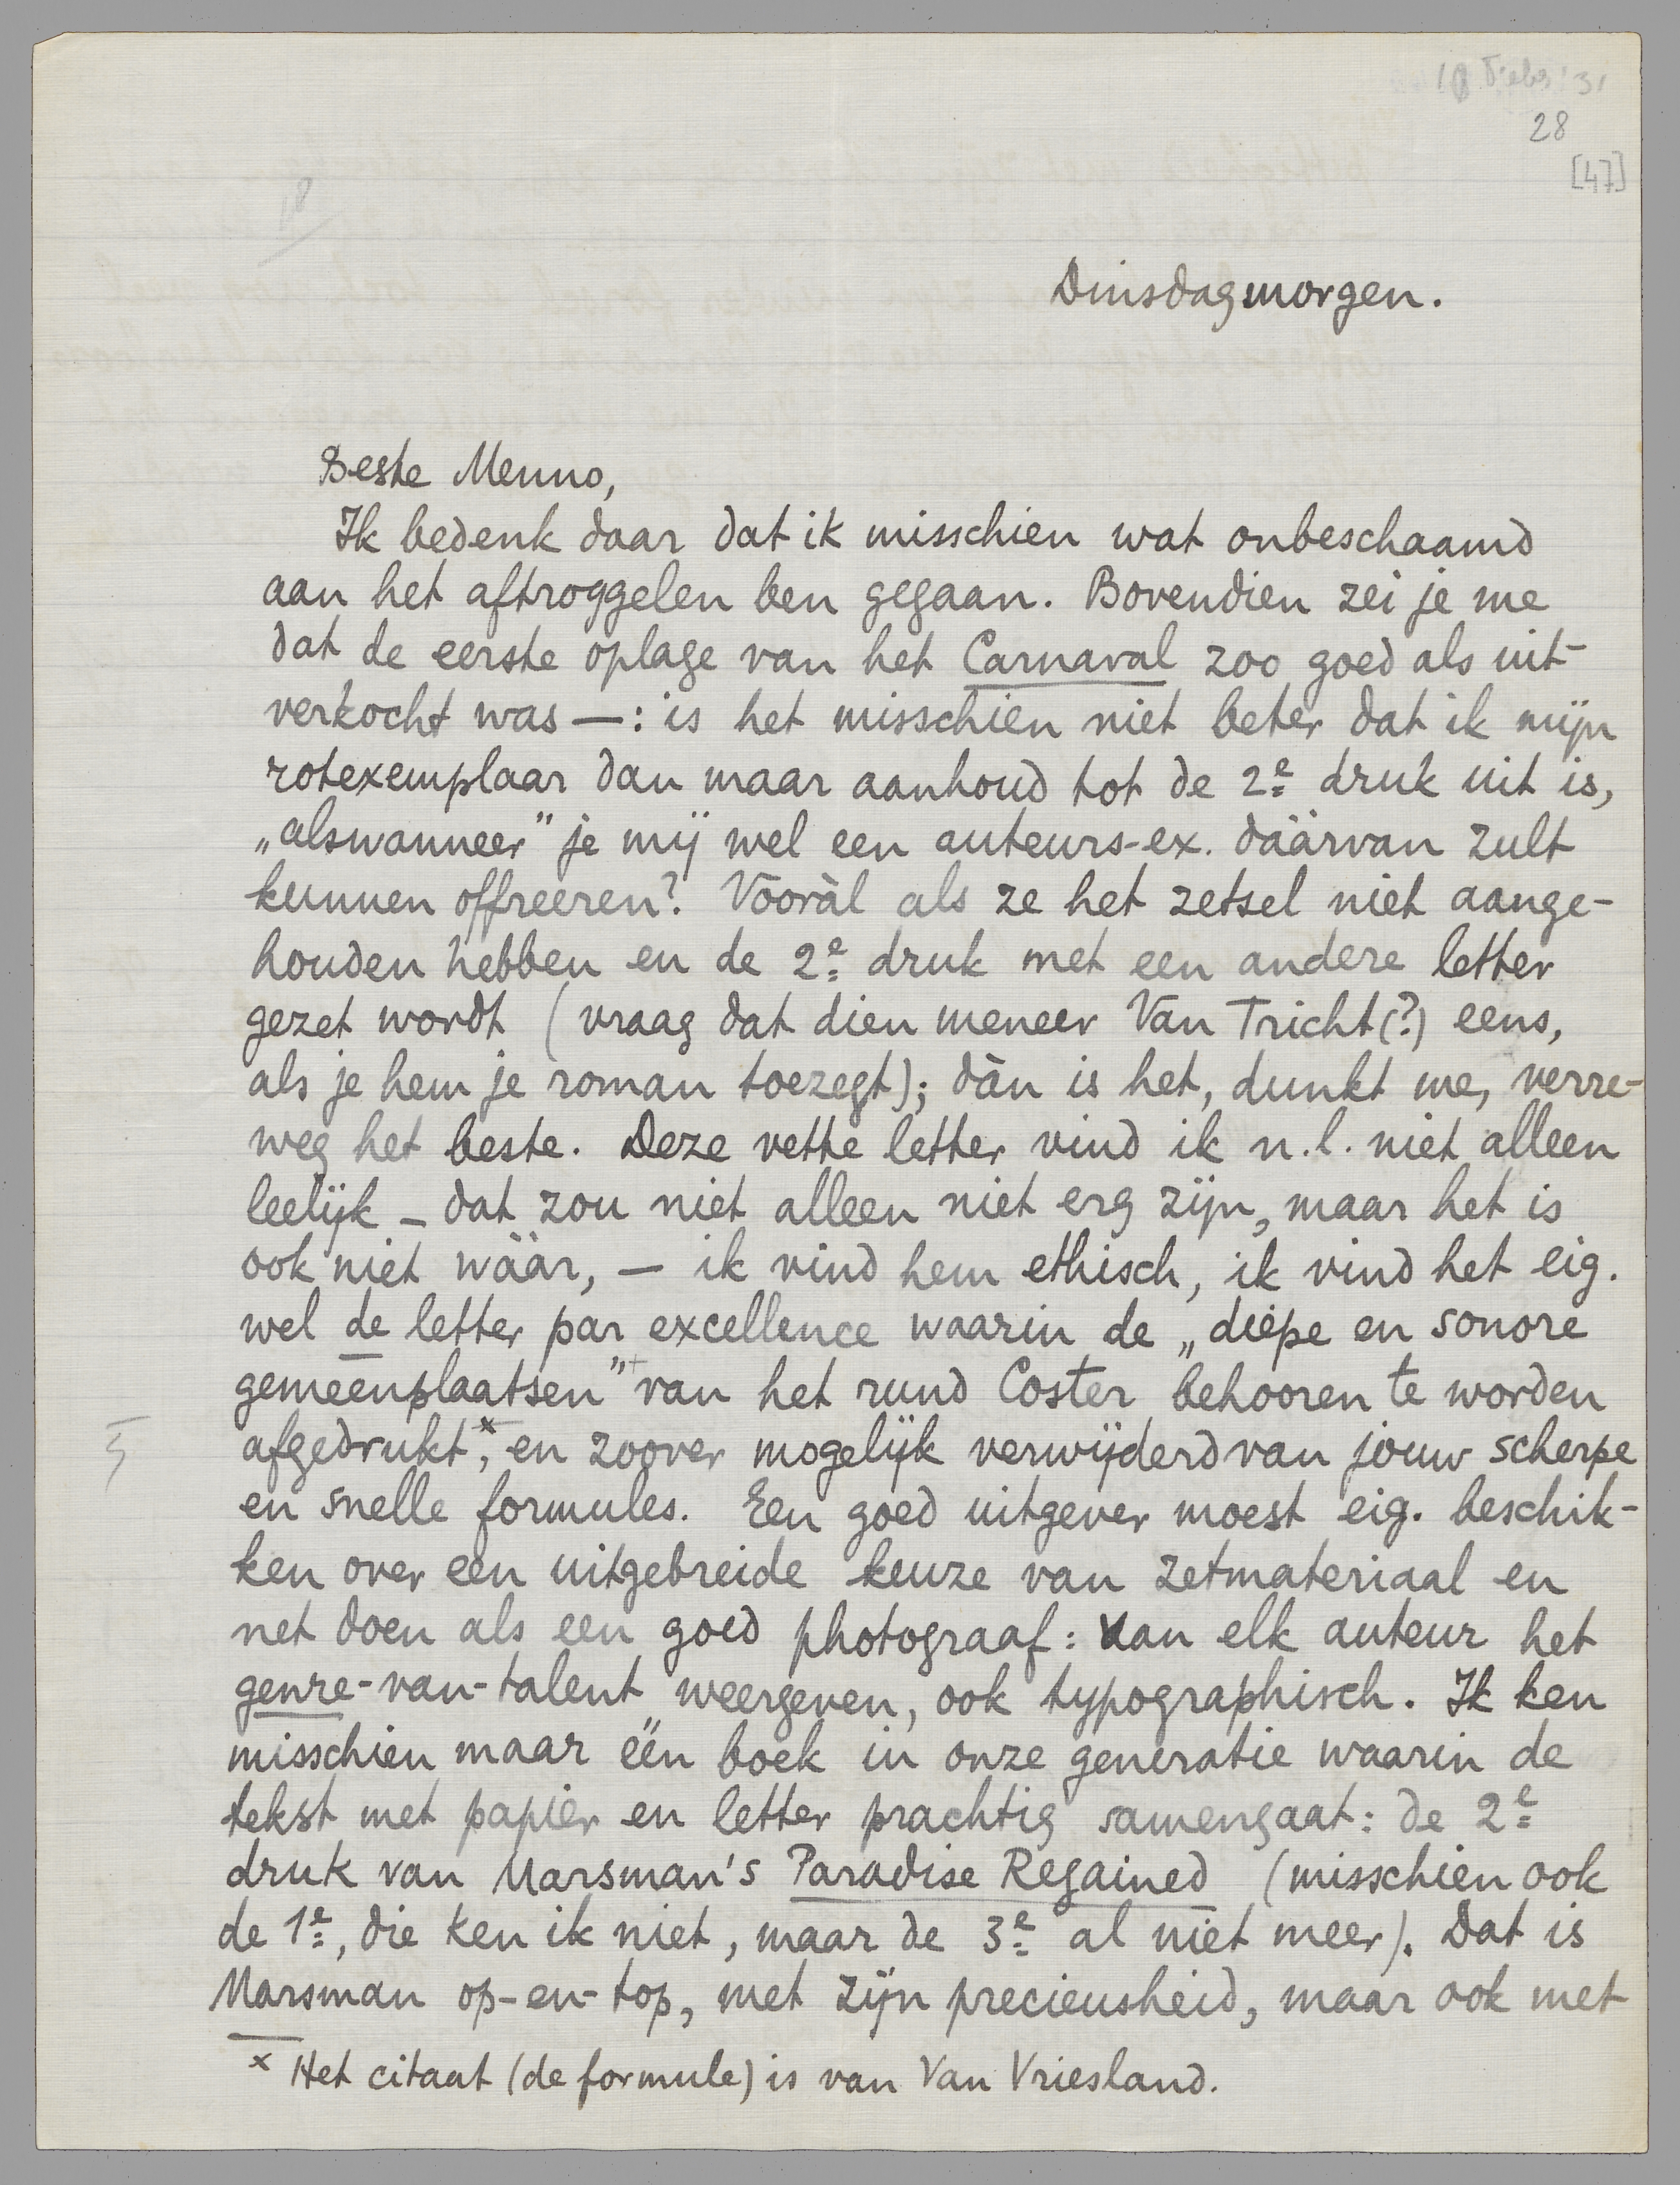 28
[47]
18
Dinsdagmorgen.
Beste Menno,
Ik bedenk daar dat ik misschien wat onbeschaamd
aan het aftroggelen ben gegaan. Bovendien zei je me
dat de eerste oplage van het Carnaval zoo goed als uit-
verkocht was —: is het misschien niet beter dat ik mijn
rotexemplaar dan maar aanhoud tot de 2e druk uit is,
„alswanneer” je mij wel een auteurs-ex. dáárvan zult
kunnen offreeren? Vooràl als ze het zetsel niet aange-
houden hebben en de 2e druk met een andere letter
gezet wordt (vraag dat dien meneer Van Tricht(?) eens,
als je hem je roman toezegt); dàn is het, dunkt me, verre-
weg het beste. Deze vette letter vind ik n.l. niet alleen
leelijk – dat zou niet alleen niet erg zijn, maar het is
ook niet wáár, — ik vind hem ethisch, ik vind het eig.
wel de letter par excellence waarin de „diepe en sonore
gemeenplaatsen” van het rund Coster behooren te worden
afgedrukt,* en zoover mogelijk verwijderd van jouw scherpe
en snelle formules. Een goed uitgever moest eig. beschik-
ken over een uitgebreide keuze van zetmateriaal en
net doen als een goed photograaf: van elk auteur het
genre-van-talent weergeven, ook typographisch. Ik ken
misschien maar één boek in onze generatie waarin de
tekst met papier en letter prachtig samengaat: de 2e
druk van Marsman's Paradise Regained (misschien ook
de 1e, die ken ik niet, maar de 3e al niet meer). Dat is
Marsman op-en-top, met zijn precieusheid, maar ook met
x Het citaat (de formule) is van Van Vriesland.